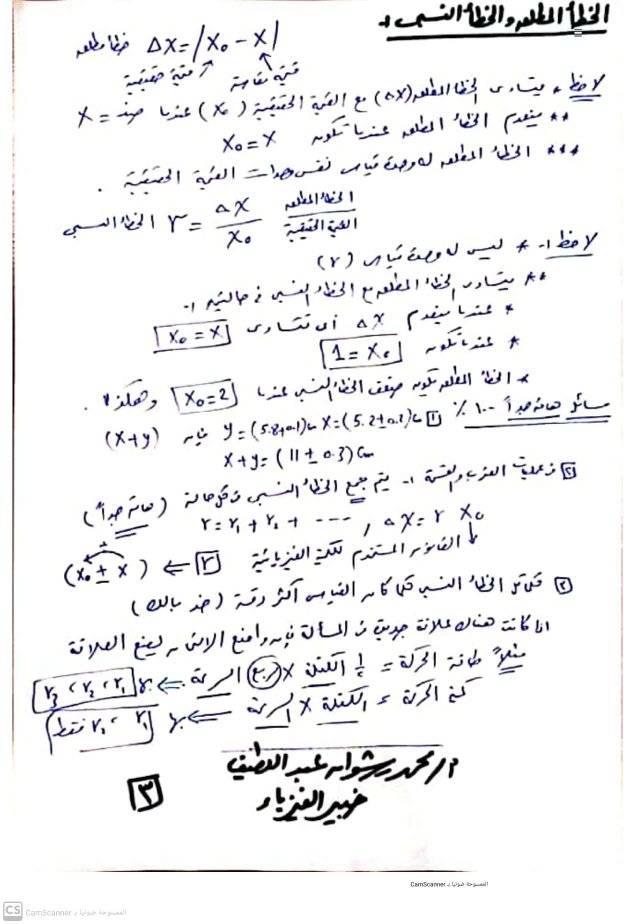 الخطأ المطلق والخطأ النسبى :-
خطأ مطلق Δx = |x₀ - x|
قيمة حقيقية قيمة مقاسة
لاحظ * يتساوى الخطأ المطلق (Δx) مع القيمة الحقيقية (x₀) عندما صفر = x
** ينعدم الخطأ المطلق عندما تكون x₀ = x
*** الخطأ المطلق له وحدة قياس نفس وحدات القيمة الحقيقية .
الخطأ النسبى r = Δx / x₀ الخطأ المطلق / القيمة الحقيقية
لاحظ :- * ليس له وحدة قياس (r)
** يتساوى الخطأ المطلق مع الخطأ النسبى فى حالتين :-
* عندما ينعدم Δx أى تتساوى x₀ = x
* عندما تكون 1 = x₀
* الخطأ المطلق يكون ضعف الخطأ النسبى عندما x₀ = 2 وهكذا .
مسائل هامة جداً ١٠٠٪ ① x = (5.2 ± 0.2) Cm y = (5.8 ± 0.1) فإن (x+y)
x+y = (11 ± 0.3) Cm
② فى عمليات الضرب والقسمة :- يتم جمع الخطأ النسبى فى كل حالة (هامة جداً)
r = r₁ + r₂ + ---- , Δx = r x₀
القانون المستخدم للكمية الفيزيائية ⇐ r ⇐ (x₀ ± x)
③ كلما قل الخطأ النسبى كلما كان القياس أكثر دقة (خد بالك)
اذا كانت هناك علاقة جديدة فى المسألة فإن واضع الاسئلة يضع العلاقة
مثلاً طاقة الحركة = ½ الكتلة × مربع السرعة ⇐ بها r₁ ، r₂ ، r₃
كمية الحركة = الكتلة × السرعة ⇐ بها r₁ ، r₂ فقط
أ/ محمد رشوان عبد اللطيف
خبير الفيزياء
٣
الممسوحة ضوئيا بـ CamScanner
CS الممسوحة ضوئيا بـ CamScanner